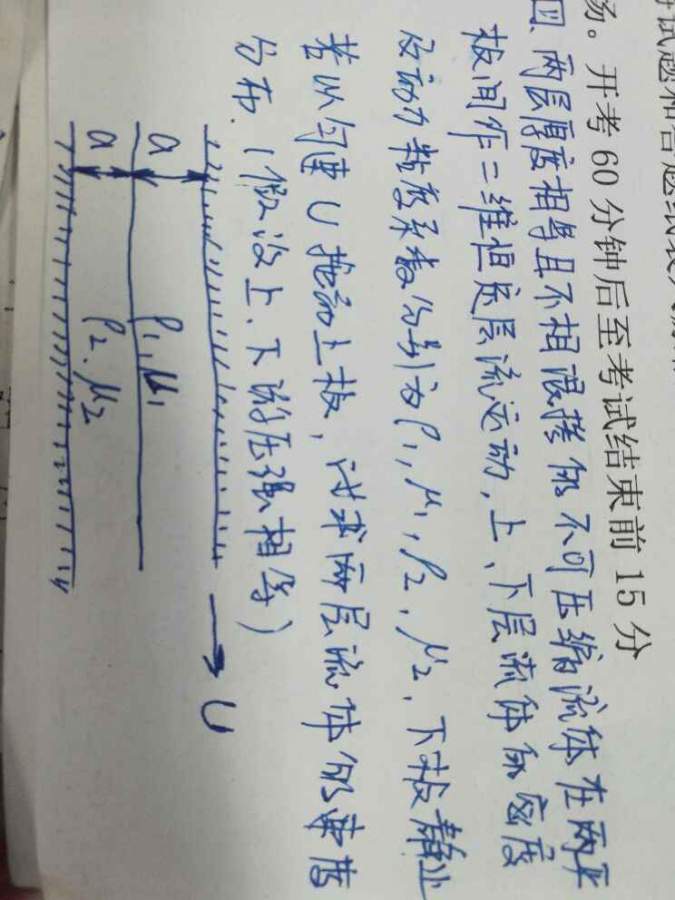 考试题和答题纸装入
场。开考 60 分钟后至考试结束前 15 分
四、两层厚度相等且不相混掺的不可压缩流体在两平
板间作二维恒定层流运动,上、下层流体的密度
及动力粘度系数分别为ρ₁,μ₁,ρ₂、μ₂,下板静止
若以匀速U拖动上板,试求两层流体的速度
分布.(假设上、下游压强相等)
U
a ρ₁,μ₁
a ρ₂、μ₂